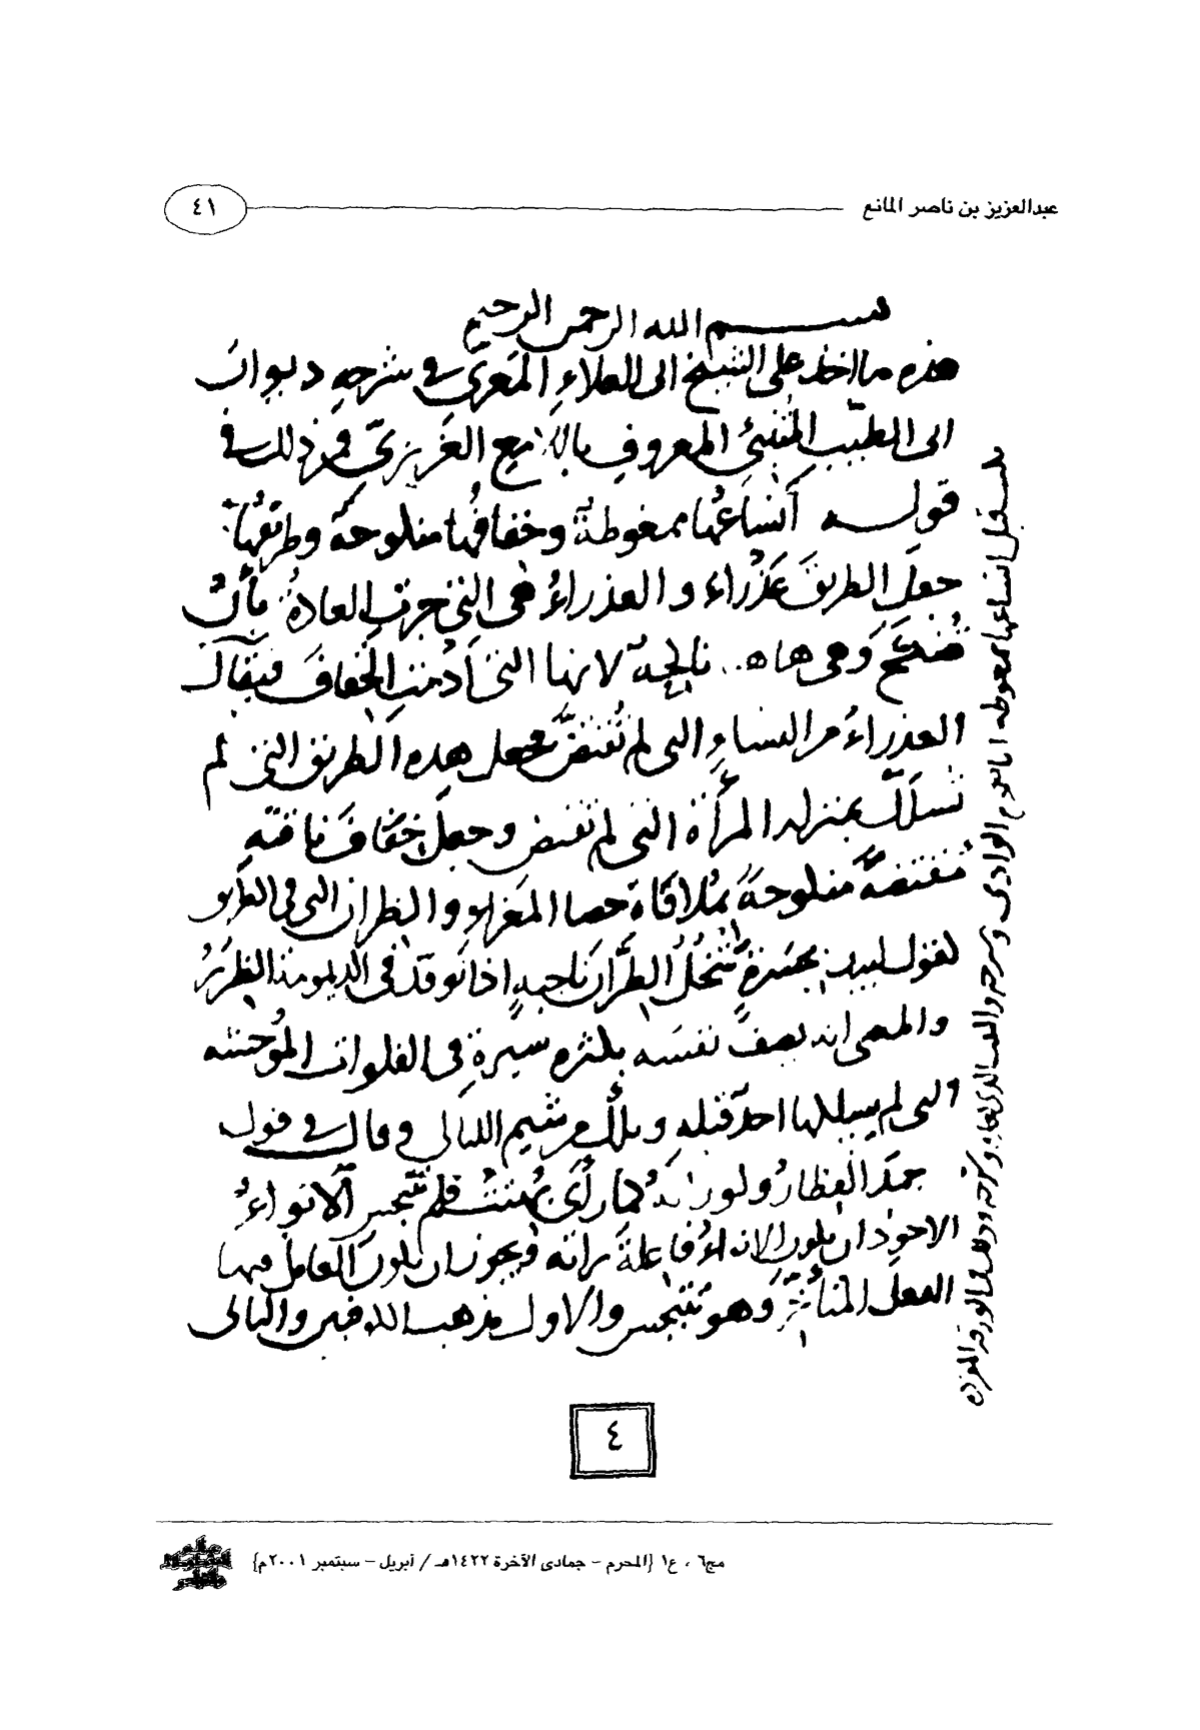 عبدالعزيز بن ناصر المانع
٤١
بسم الله الرحمن الرحيم
هذه ما اخذ على الشيخ ابى العلاءِ المَعَرّي في شرحِهِ ديوان
ابى الطيّب المُتَنَبّي المعروفِ باللامِعِ العَزيزيّ فمن ذلك في
قوله أَنساعُها ممغوطةٌ وخفافُها منكوحةٌ وطريقُها
جعلَ الطريقَ عَذْراء والعذراءُ هي التي جرت العادةُ بأن
تُنكَحَ وهي هاهنا ناكحةٌ لانها التي أَدْمَتِ الخِفافَ فيقال
العذراءُ من النساءِ التي لم تُفتَضَّ فجعل هذه الطريق التي لم
تُسلَك بمنزلة المرأة التي لم تفتض وجعل خِفافَ ناقته
مفتضّة منكوحةً بمُلاقاة حصا المَعزاء والظران التي في الطريق
لقول لبيد بجَسْرةٍ تَنْجُلُ الظُّرّانَ ناجيةٍ اذا توقد في الديمومة الظُرَرُ
والمعنى انه يصف نفسَه بكثرةِ سيرهِ في الفلوات المُوحشة
والتي لم يسلكها احدٌ قبله وتلك من شيم الليالي وقال في قول
جمدَ القِطارُ ولو رأتهُ كما رأى بُهِتَتْ فلم تَتَبَجَّسِ الأنواءُ
الاجودُ ان تكون الانواءُ فاعلةَ رأته ويجوز ان تكون العامل فيها
الفعل المتأخّر وهو تتبجس والاول مذهب الكوفيين والثاني
قبل انساعها ممغوطه
٤
مج٦ ، ع١ {المحرم - جمادى الآخرة ١٤٢٢هـ / أبريل - سبتمبر ٢٠٠١م}